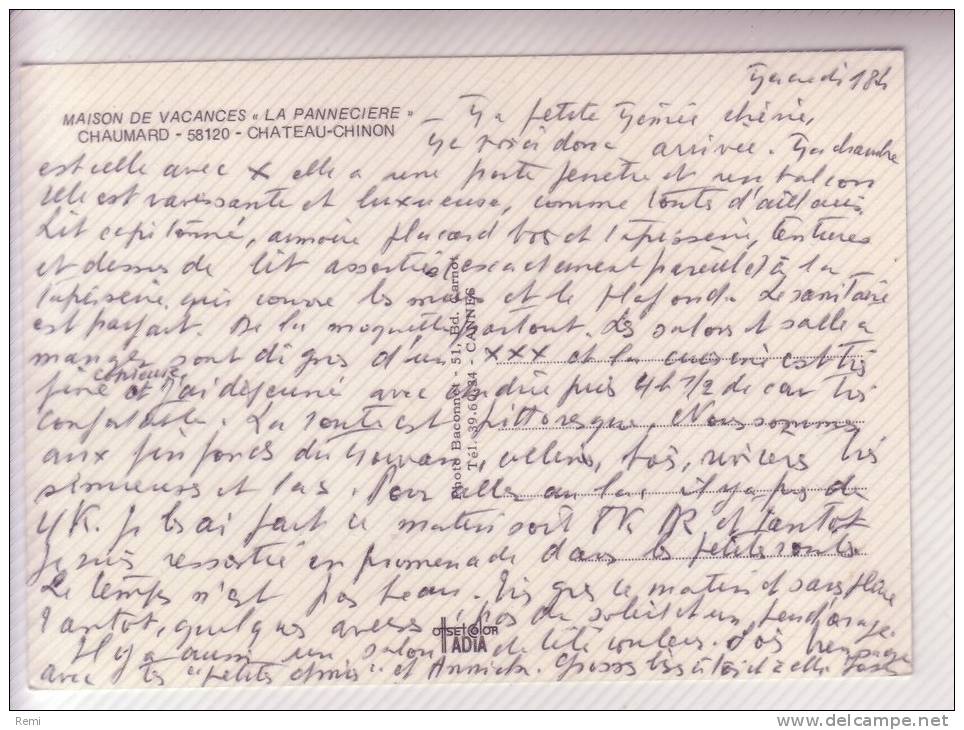 18h
MAISON DE VACANCES « LA PANNECIERE »
CHAUMARD - 58120 - CHATEAU-CHINON
petite chérie,
voici donc arrivée. chambre
est elle avec X elle a une porte fenêtre et un balcon
elle est ravissante et luxueuse, comme toutes d'ailleurs
Lit capitonné, armoire placard bois et tapisserie, tentures
et dessus de lit assorties (exactement pareille) à la
tapisserie qui couvre les murs et le plafond. Le sanitaire
est parfait. De la moquette partout. Les salons et salle a
manger sont dignes d'un XXX et la cuisine est très
copieuse
fine et J'ai déjeuné avec puis 4h 1/2 de car très
confortable. La route est pittoresque. Nous sommes
aux fin fonds du Morvan, collines, bois, rivières très
sinueuses et lacs. Pour aller au lac il y a pas de
4K. Je les ai fait ce matin soit 8K AR et tantot
je suis ressortie en promenade dans les petites routes
Le temps n'est pas beau. Très gris ce matin et sans pluie
Tantot, quelques averses, pas de soleil et un
Il y a aussi un salon de télé couleur.
avec les "petites et Annick. Grosses bises à toi et à elle
Photo Baconnet - 51, Bd. Carnot
Tél. 39.60.84 - CANNES
OFFSET COLOR
ADIA
Remi
http://www.delcampe.net